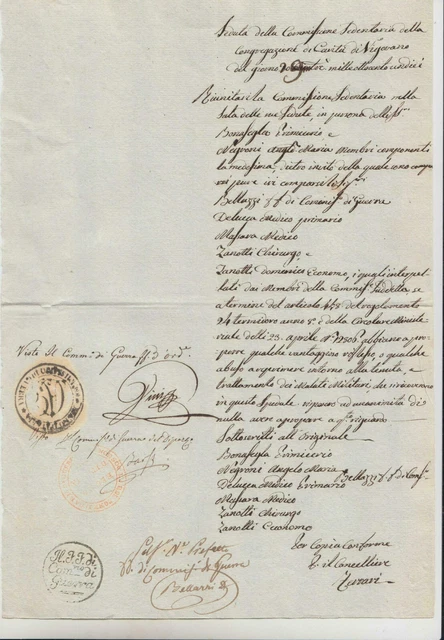 Seduta della Commissione Sedentaria della
Congregazione di Carità di Vigevano
del giorno mille ottocento undici
Riunitasi la Commissione Sedentaria nella
Sala delle sue Sedute, in persona delli Sig.ri
Bonasegla Primicerio e
Negroni Ang.lo Maria Membri componenti
la medesima, dietro invito della quale sono compar
si pure ivi
Bellazzi ff. di Commiss. di Guerra
Deluca Medico primario
Massara Medico
Zanotti Chirurgo e
Zanotti domenico Economo, i quali interpel
lati dai Membri della Commiss. Suddetta se
a termine del articolo del regolamento
24 termidoro anno 8.° e della Circolare Ministe
riale delli 23. aprile 1806. abbiano a pro
porre qualche vantaggioso riflesso, o qualche
abuso a reprimere intorno alla tenuta, e
trattamento dei Malati Militari che ritrovansi
in questo Spedale risposero ad unanimità di
nulla avere a proporre a q.to riguardo
Sottoscritti all'originale
Bonasegla Primicerio
Negroni Angelo Maria
Bellazzi ff. di Com.
Deluca Medico Primario
Massara Medico
Zanotti Chirurgo
Zanotti Economo
Per Copia Conforme
Il Cancelliere
Visto Il Comm. di Guerra ff. d'ord.
Il Commiss. Guerra
Pel Sig. V.e Prefetto
ff. di Commiss. di Guerra
Bellazzi
Com.rio di
Guerra